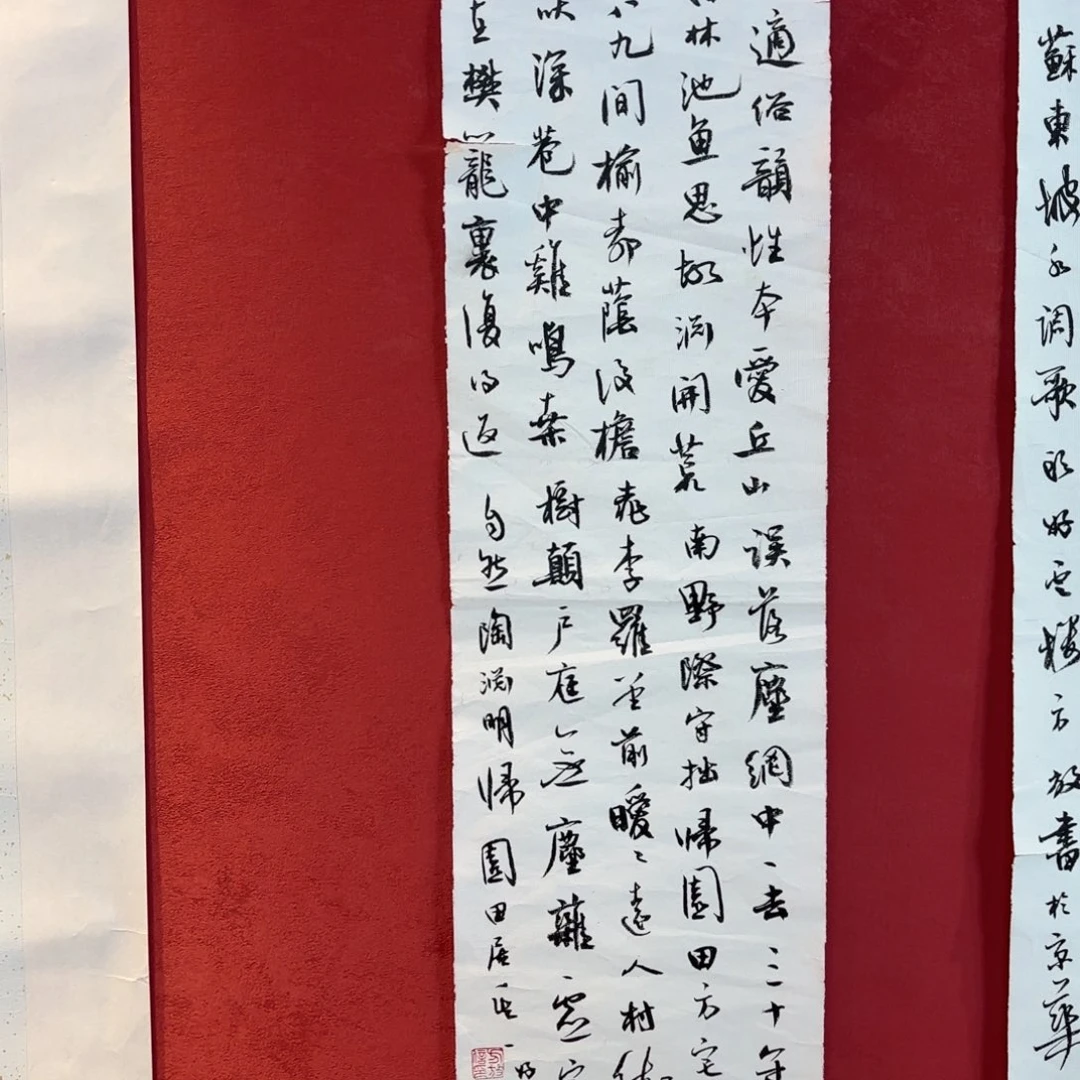 蘇東坡水调歌頭好雲樓方放書於京華
適俗韻性本愛丘山误落塵網中一去三十年
林池鱼思故渊開荒南野際守拙歸園田方宅
八九間榆柳蔭後檐桃李羅堂前暧々遠人村依
吠深巷中雞鳴桑樹顛户庭無塵雜虚室
在樊籠裏復得返自然陶渊明歸園田居其一